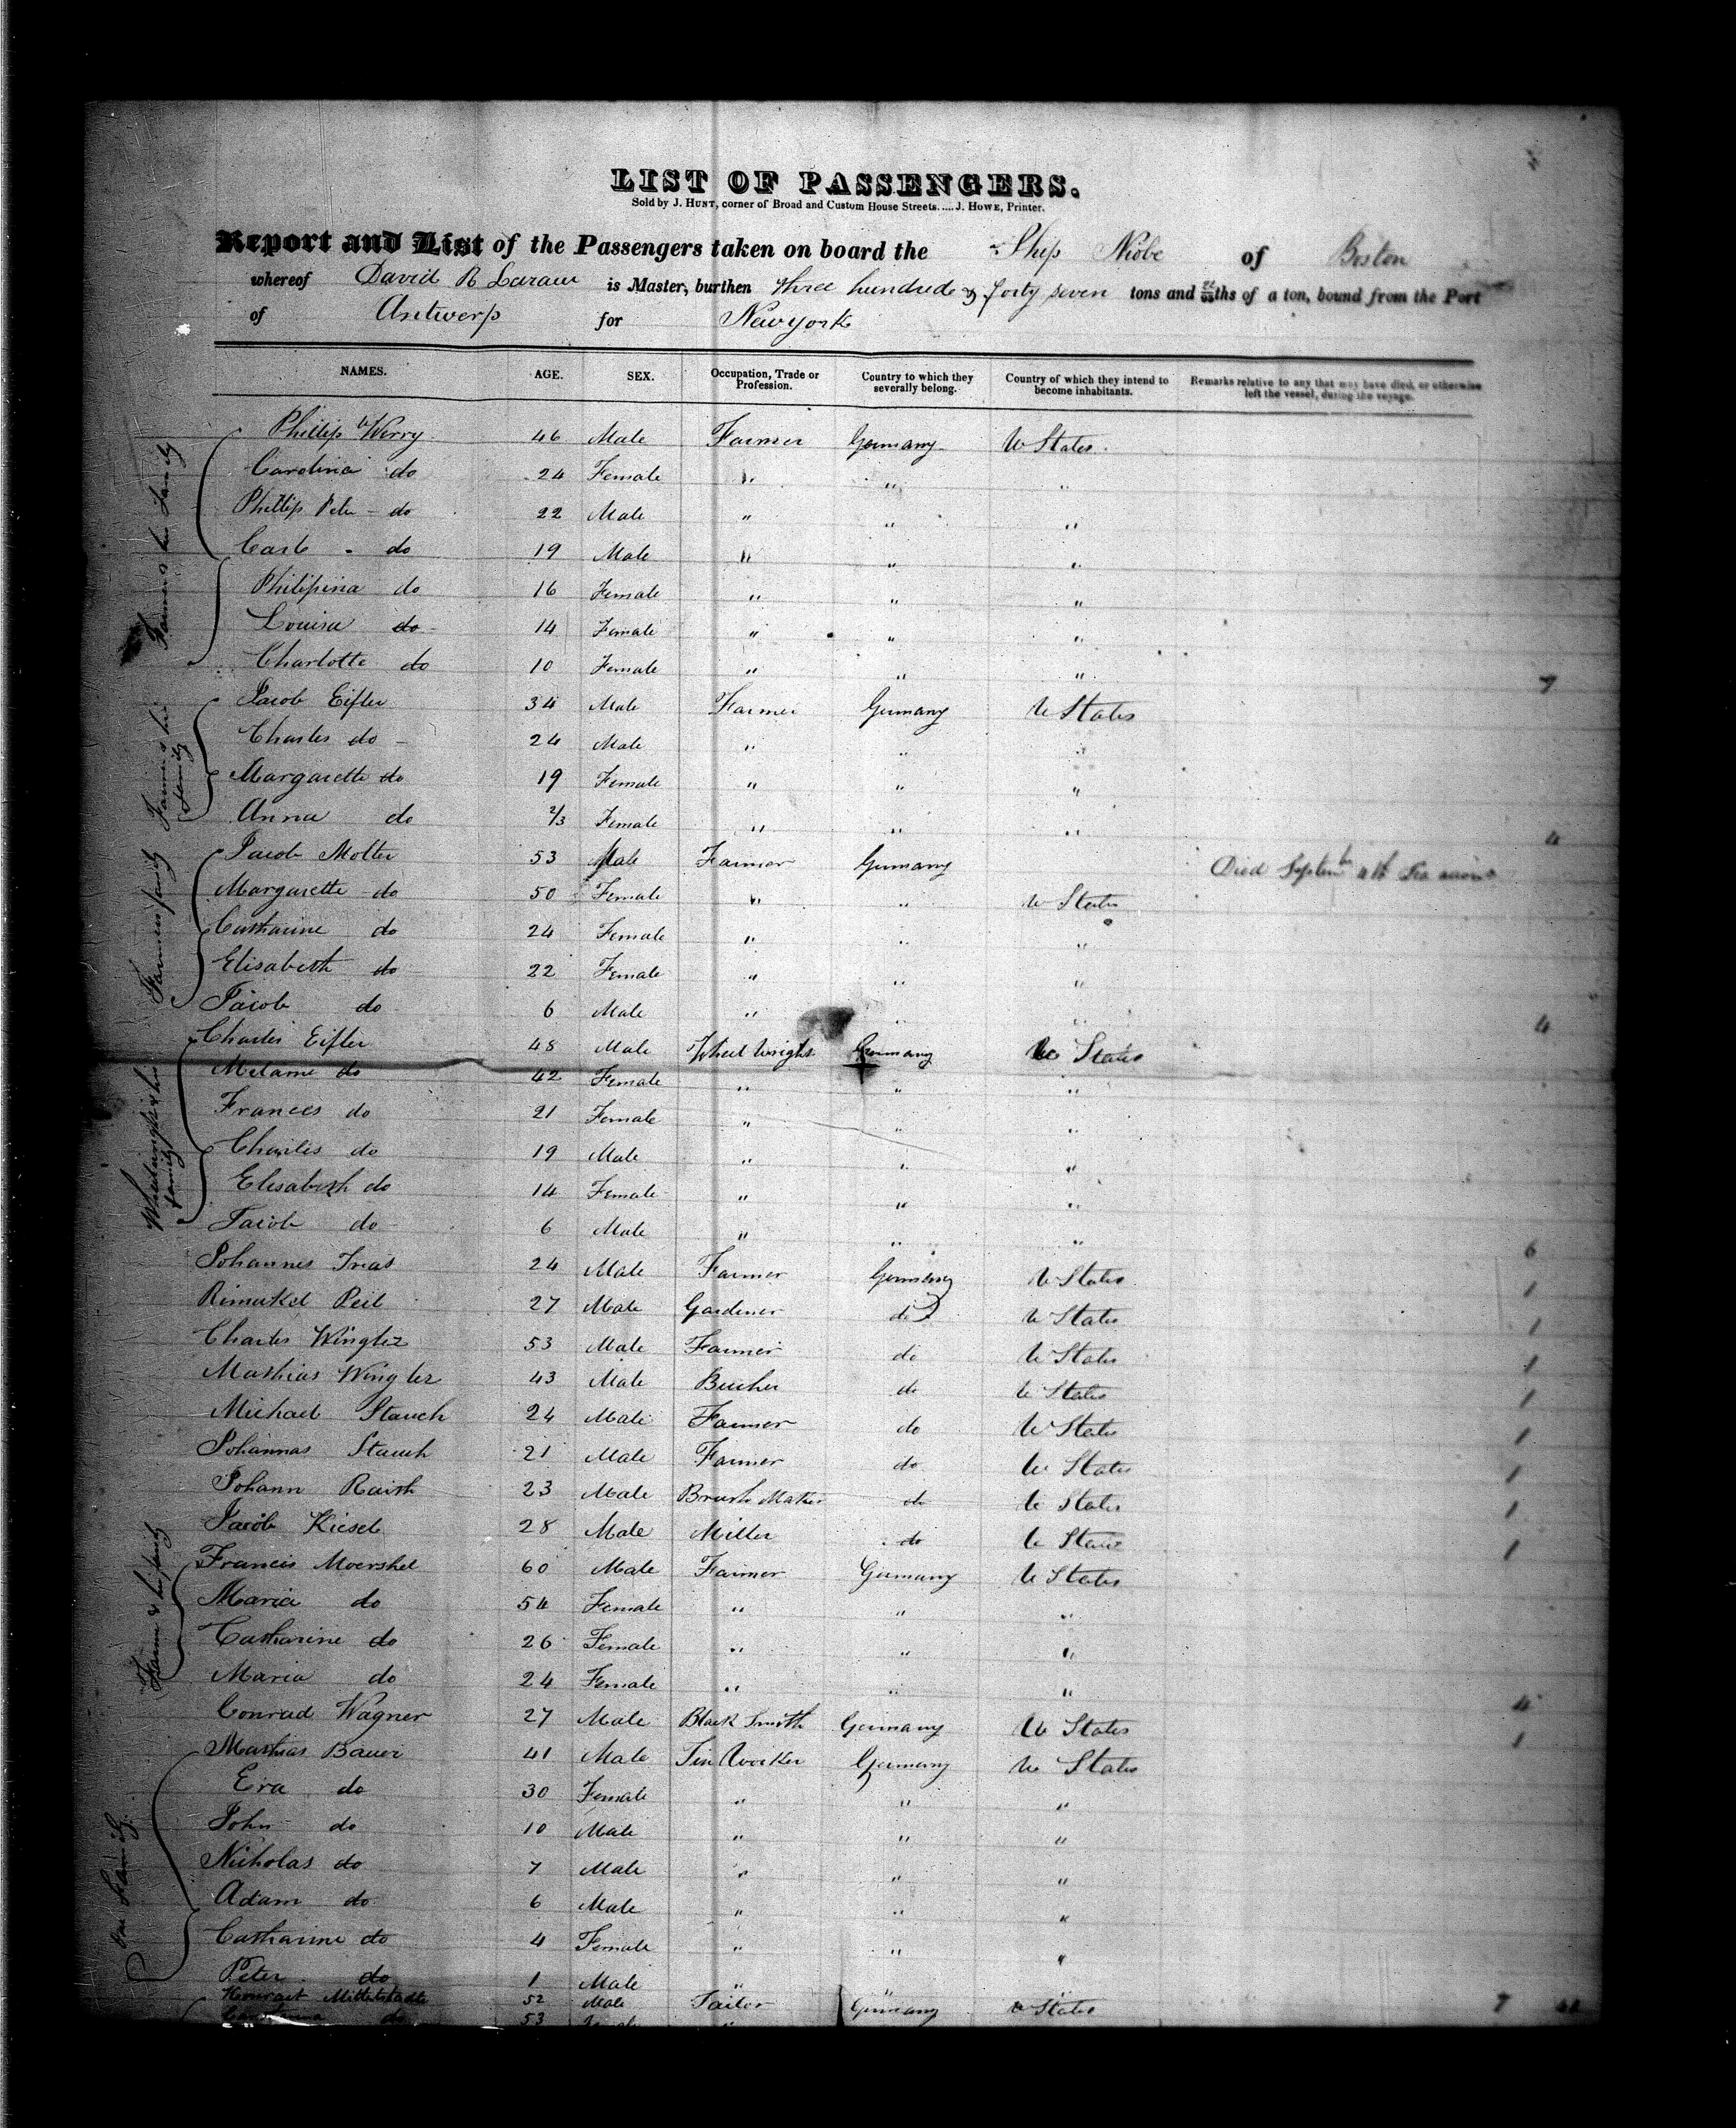 LIST OF PASSENGERS.
Sold by J. HUNT, corner of Broad and Custom House Streets.....J. HOWE, Printer.
Report and List of the Passengers taken on board the Ship Niobe of Boston
whereof David R is Master, burthen three hundred & forty seven tons and ths of a ton, bound from the Port
of Antwerp for Newyork
NAMES. AGE. SEX. Occupation, Trade or Profession. Country to which they severally belong. Country of which they intend to become inhabitants. Remarks relative to any that may have died, or otherwise left the vessel, during the voyage.
Phillip Werry 46 Male Farmer Germany U States
Carolina do 24 Female " " "
Phillip Peter do 22 Male " " "
Carl do 19 Male " " "
Philipina do 16 Female " " "
Louisa do 14 Female " " "
Charlotte do 10 Female " " " 7
Jacob Eifler 34 Male Farmer Germany U States
Charles do 24 Male " " "
Margarette do 19 Female " " "
Anna do 2/3 Female " " " 4
Jacob Molter 53 Male Farmer Germany Died Septem 4th
Margarette do 50 Female " " U States
Catharine do 24 Female " " "
Elisabeth do 22 Female " " "
Jacob do 6 Male " " " 4
Charles Eifler 48 Male Wheel wright Germany U States
Melanie do 42 Female " " "
Frances do 21 Female " " "
Charles do 19 Male " " "
Elisabeth do 14 Female " " "
Jacob do 6 Male " " " 6
Johannes Trias 24 Male Farmer Germany U States 1
Peil 27 Male Gardener do U States 1
Charles Winglez 53 Male Farmer do U States 1
Mathias Winglez 43 Male Bucher do U States 1
Michael Stauch 24 Male Farmer do U States 1
Johannas Stauch 21 Male Farmer do U States 1
Johann Raish 23 Male Brush Maker do U States 1
Jacob Kiesel 28 Male Miller do U States 1
Francis Moershel 60 Male Farmer Germany U States
Maria do 54 Female " " "
Catharine do 26 Female " " "
Maria do 24 Female " " " 4
Conrad Wagner 27 Male Black Smith Germany U States 1
Mathias Bauer 41 Male Tin Worker Germany U States
Eva do 30 Female " " "
John do 10 Male " " "
Nicholas do 7 Male " " "
Adam do 6 Male " " "
Catharine do 4 Female " " "
Peter do 1 Male " " " 7
Mittelstadt 52 Male Tailor Germany U States
do 53
Farmer & his family
Farmer & his family
Farmers family
Wheelwright & his family
Farmer & his family
One Family